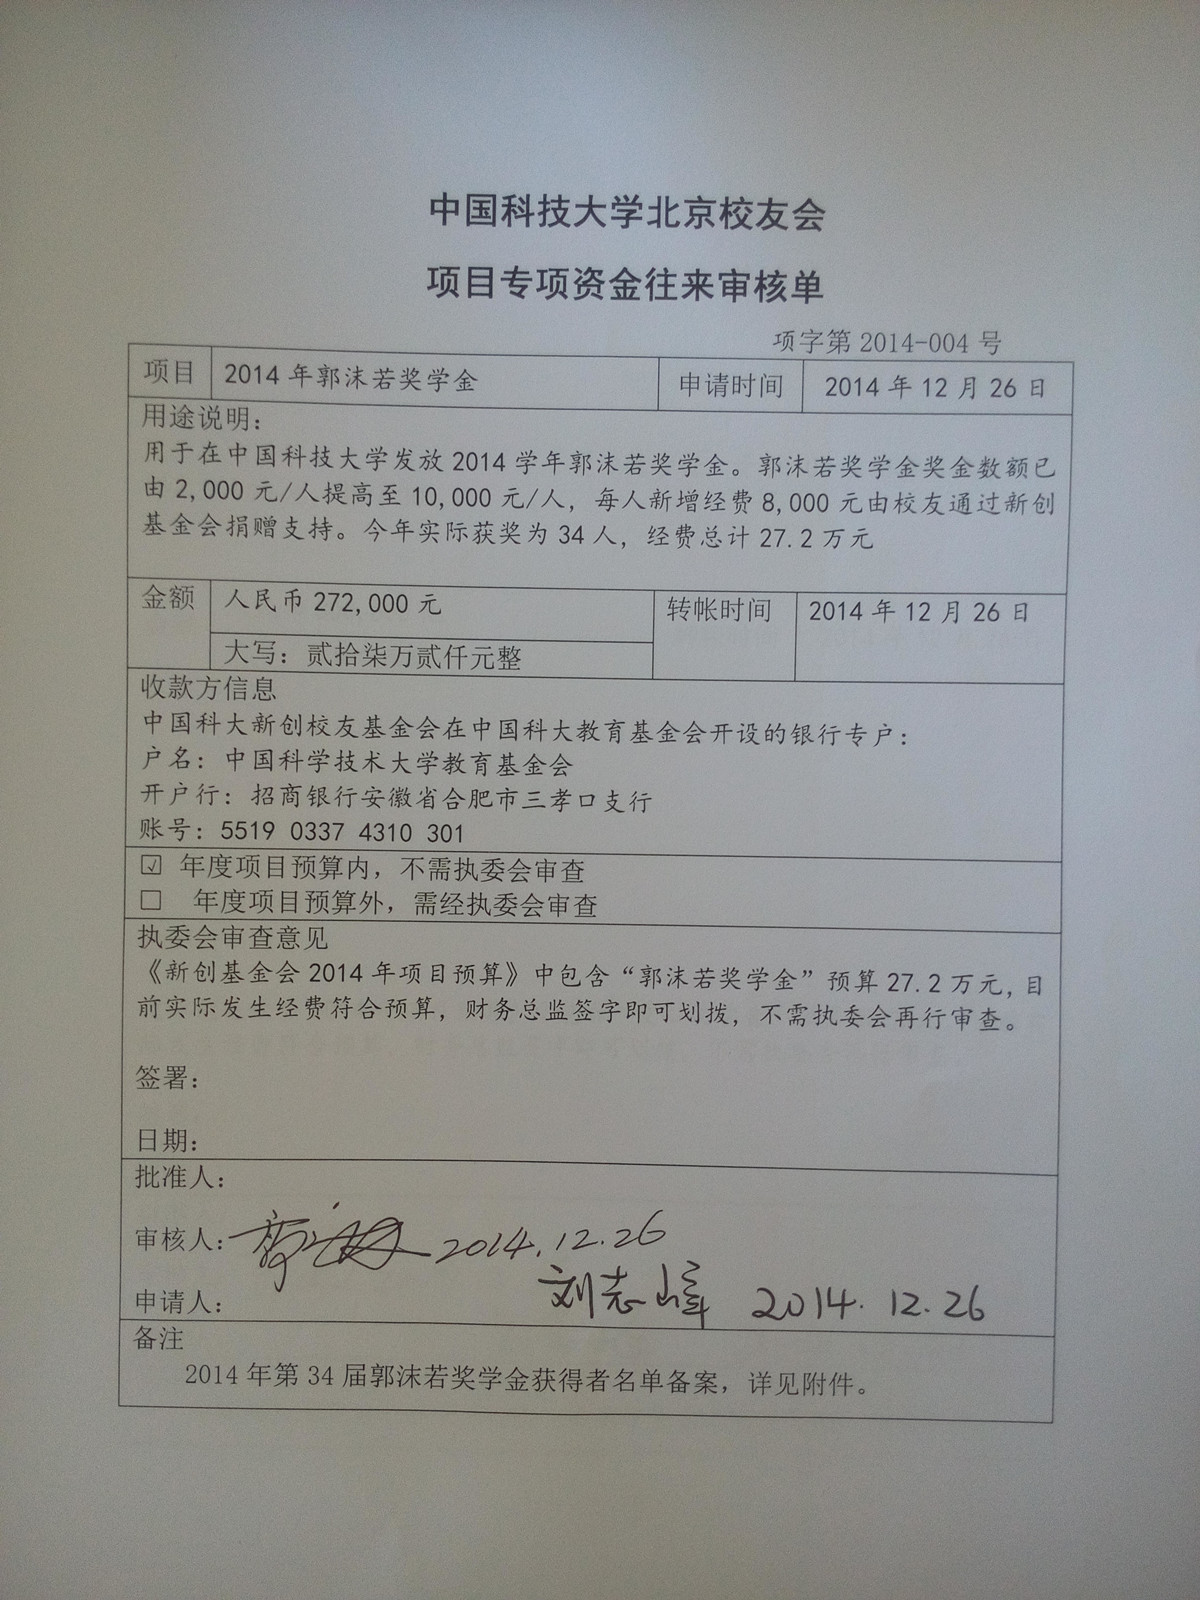 中国科技大学北京校友会
项目专项资金往来审核单
项字第 2014-004 号
项目 2014 年郭沫若奖学金 申请时间 2014 年 12 月 26 日
用途说明:
用于在中国科技大学发放 2014 学年郭沫若奖学金。郭沫若奖学金奖金数额已
由 2,000 元/人提高至 10,000 元/人，每人新增经费 8,000 元由校友通过新创
基金会捐赠支持。今年实际获奖为 34 人，经费总计 27.2 万元
金额 人民币 272,000 元 转帐时间 2014 年 12 月 26 日
大写：贰拾柒万贰仟元整
收款方信息
中国科大新创校友基金会在中国科大教育基金会开设的银行专户：
户名：中国科学技术大学教育基金会
开户行：招商银行安徽省合肥市三孝口支行
账号：5519 0337 4310 301
☑ 年度项目预算内，不需执委会审查
☐ 年度项目预算外，需经执委会审查
执委会审查意见
《新创基金会 2014 年项目预算》中包含“郭沫若奖学金”预算 27.2 万元，目
前实际发生经费符合预算，财务总监签字即可划拨，不需执委会再行审查。
签署：
日期：
批准人：
审核人： 2014.12.26
申请人： 刘志峰 2014.12.26
备注
2014 年第 34 届郭沫若奖学金获得者名单备案，详见附件。